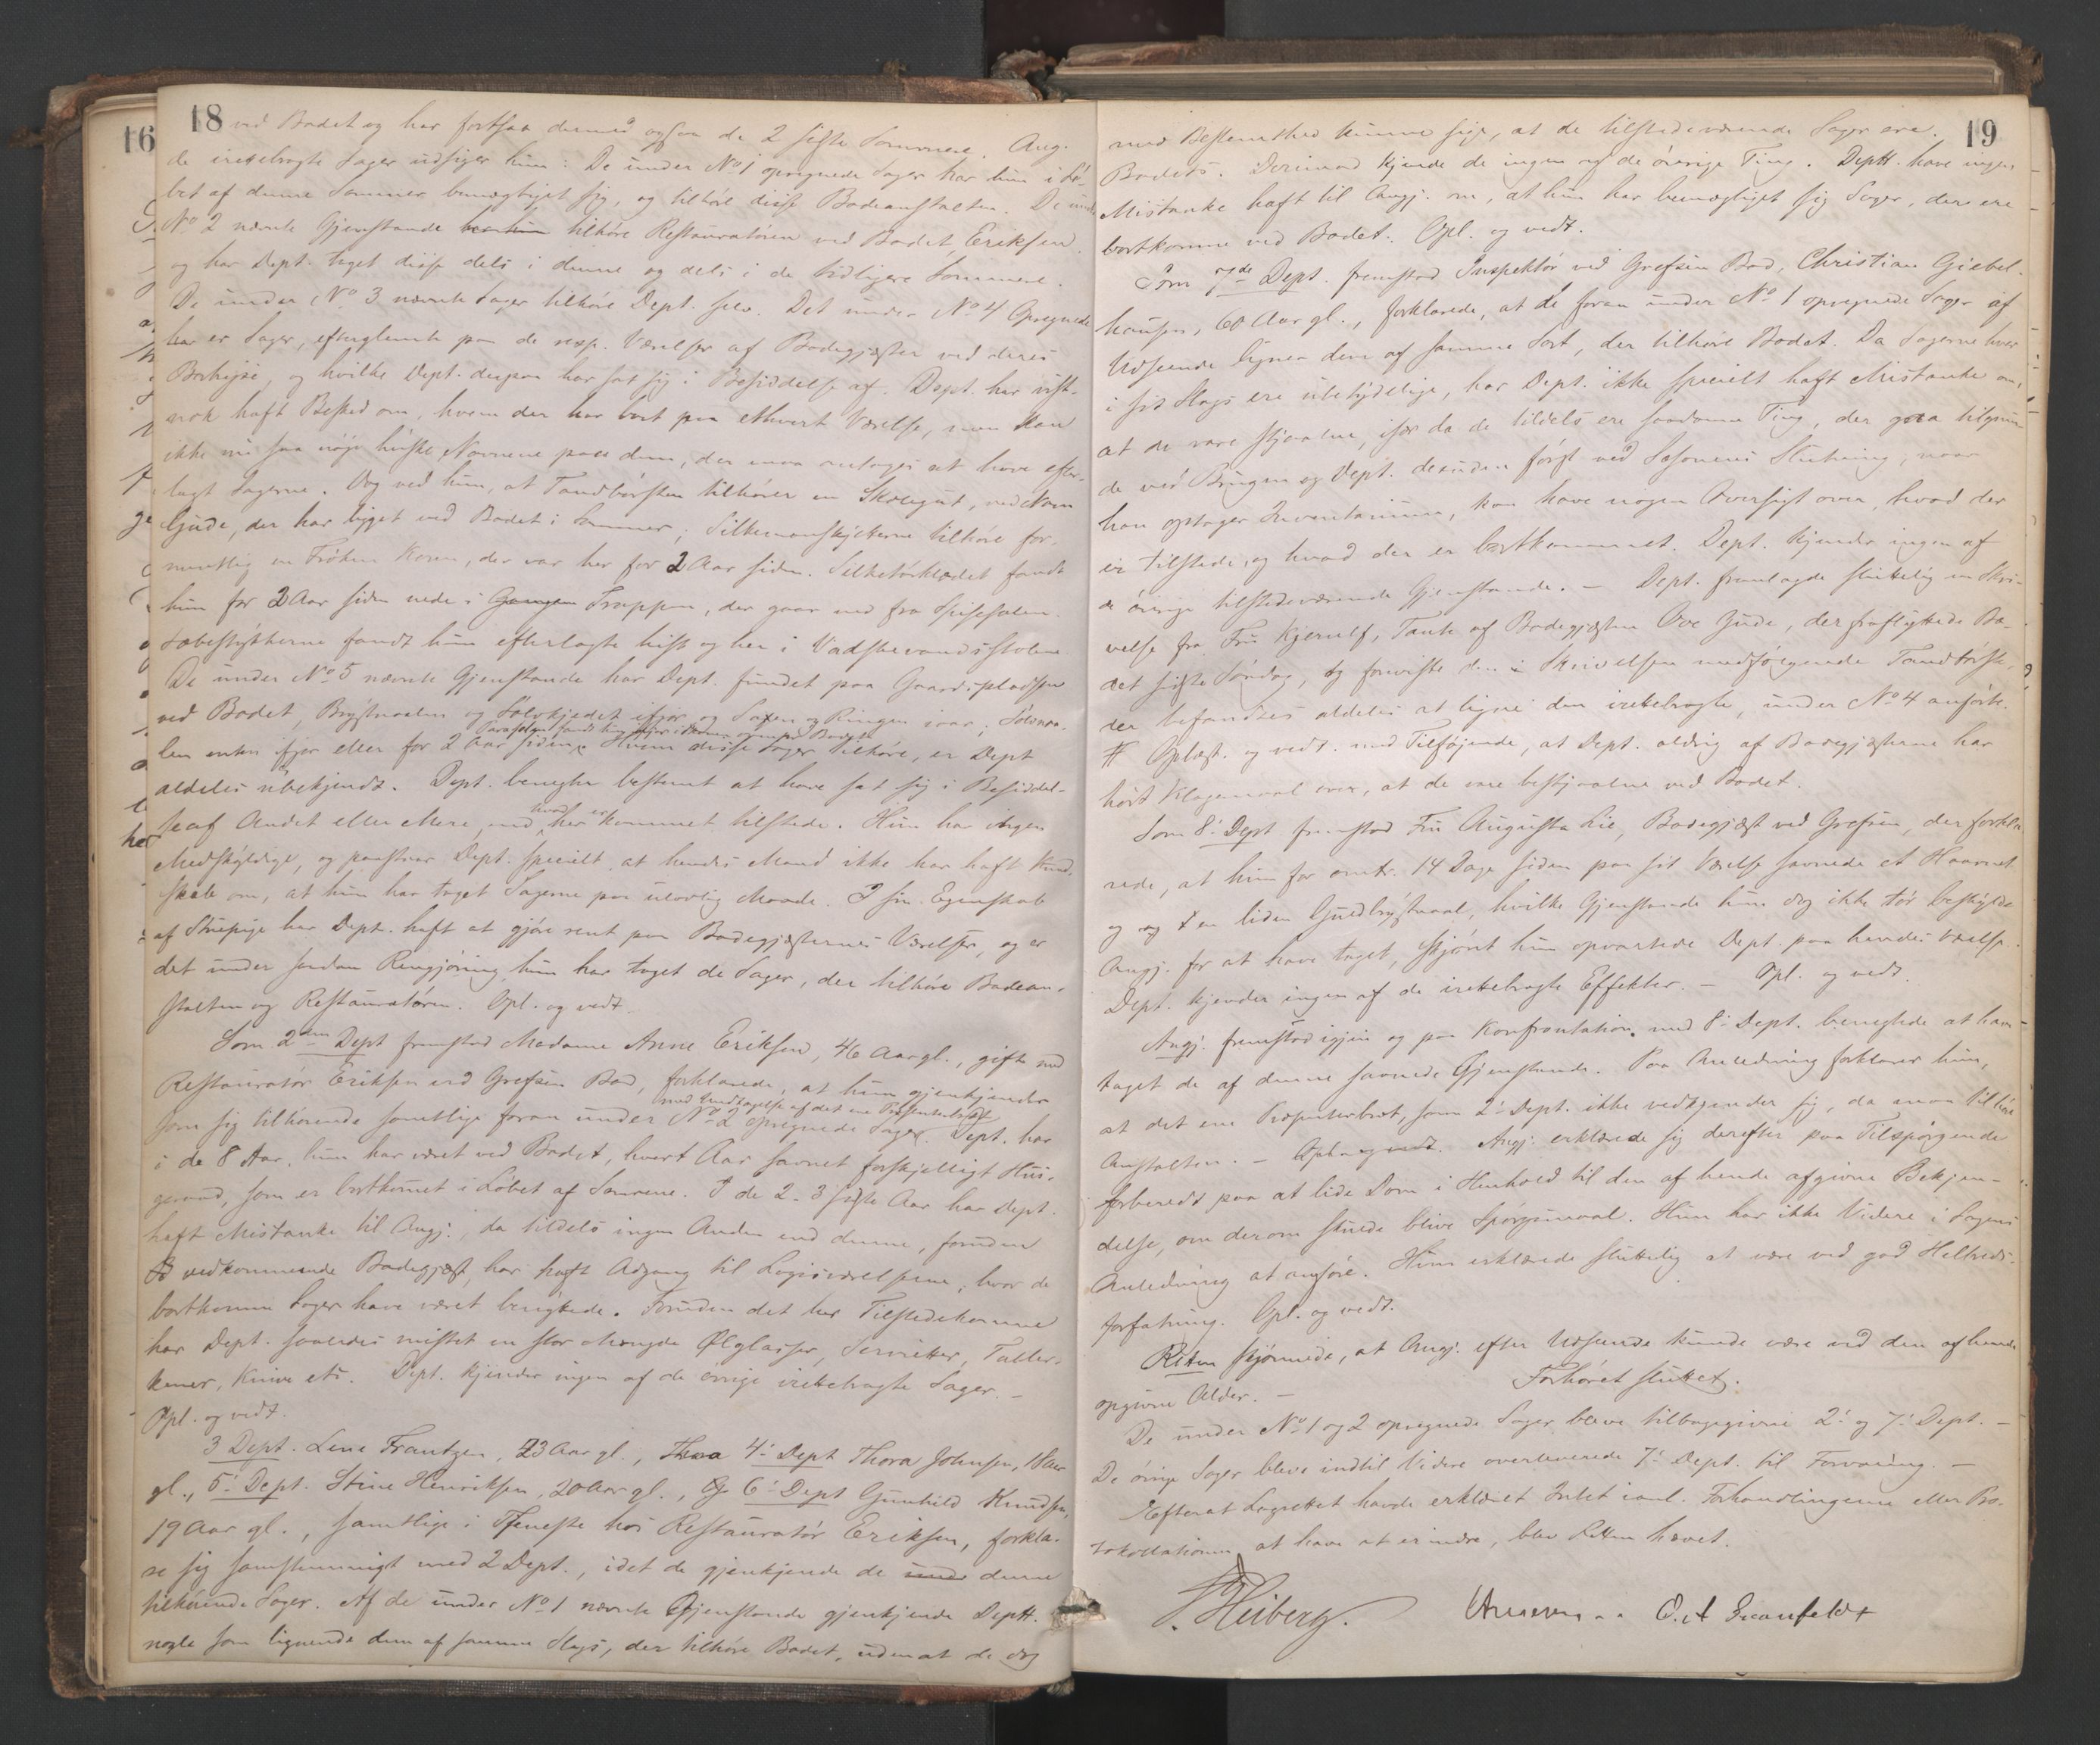 18
ved Badet og har fortsaa dermed ogsaa de 2 sidste Sommere. Ang.
de irettelagte Sager udsiger hun: De under No 1 opregnede Sager har hun i Lø-
bet af denne Sommer bemægtiget sig, og tilhøre disse Badeanstalten. De under
No 2 nævnte Gjenstande tilhøre Restauratøren ved Badet, Eriksen
og har Dept. taget disse dels i denne og dels i de tidligere Sommere.
De under No 3 nævnte Sager tilhøre Dept. selv. Det under No 4 Opregnede
har er Sager, efterglemte paa de resp. Værelser af Badegjæster ved deres
Bortrejse, og hvilke Dept. derpaa har sat sig i Besiddelse af. Dept. har vist-
nok haft Besked om, hvem der har boet paa ethvert Værelse, men kan
ikke nu saa nøje huske Navnene paa dem, der maa antages at have efter-
lagt Sagerne. Dog ved hun, at Tandbørsten tilhører en Skolegut, ved Navn
Gude, der har ligget ved Badet i Sommer; Silkemanskjetterne tilhøre for-
mentlig en Frøken Koren, der var her for 2 Aar siden. Silketørklædet fandt
hun for 2 Aar siden nede i Gangen Trappen, der gaar ned fra Spisesalen.
Sæbestykkerne fandt hun efterlagte hist og her i Vadskevandsstolene.
De under No 5 nævnte Gjenstande har Dept. fundet paa Gaardspladsen
ved Badet, Brystnaalen og Sølvkjedet ifjor og Saxen og Ringen iaar, Sølvnaa-
Parasolen fandt hun ifjor i Skoven ovenfor Badet.
len enten ifjor eller for 2 Aar siden. Hvem disse Sager tilhøre, er Dept
aldeles ubekjendt. Dept. benegter bestemt at have sat sig i Besiddel-
se af Andet eller Mere, end hvad her er kommet tilstede. Hun har ingen
Medskyldige, og paastaar Dept. specielt, at hendes Mand ikke har haft Kund-
skab om, at hun har taget Sagerne paa ulovlig Maade. I sin Egenskab
af Stuepige har Dept. haft at gjøre rent paa Badegjæsternes Værelser, og er
det under saadan Rengjøring, hun har taget de Sager, der tilhøre Badean-
stalten og Restauratøren. Opl. og vedt.
Som 2den Dept fremstod Madame Anne Eriksen, 46 Aar gl., gift med
Restauratør Eriksen ved Grefsen Bad, forklarede, at hun gjenkjender
med Undtagelse af det ene Præsenterbræt
som sig tilhørende samtlige foran under No 2 opregnede Sager. Dept. har
i de 8 Aar, hun har været ved Badet, hvert Aar savnet forskjelligt Hus-
geraad, som er bortkommet i Løbet af Sommeren. I de 2-3 sidste Aar har Dept.
haft Mistanke til Angj., da tildels ingen Anden end denne, foruden
vedkommende Badegjæst, har haft Adgang til Logisværelserne, hvor de
bortkomne Sager have været benyttede. Foruden det her Tilstedekomne
har Dept. saaledes mistet en stor Mængde Ølglasser, Servietter, Taller-
kener, Knive etc. Dept. kjender ingen af de øvrige irettelagte Sager. –
Opl. og vedt.
3 Dept. Lene Frantzen, 23 Aar gl., Thora 4' Dept Thora Johnsen, 18 Aar
gl., 5' Dept. Stine Henriksen, 20 Aar gl., og 6' Dept Gunhild Knudsen,
19 Aar gl., samtlige i Tjeneste hos Restauratør Eriksen, forkla-
re sig samstemmigt med 2 Dept., idet de gjenkjende de denne
tilhørende Sager. Af de under No 1 nævnte Gjenstande gjenkjende Deptt.
nogle som lignende dem af samme Slags, der tilhøre Badet, uden at de dog
19
med Bestemthed kunne sige, at de tilstedeværende Sager ere
Badets. Derimod kjende de ingen af de øvrige Ting. Deptt. have ingen
Mistanke haft til Angj. om, at hun har bemægtiget sig Sager, der ere
bortkomne ved Badet. Opl. og vedt.
Som 7de Dept. fremstod Inspektør ved Grefsen Bad, Christian Giebel-
hausen, 60 Aar gl., forklarede, at de foran under No 1 opregnede Sager af
Udseende ligner dem af samme Sort, der tilhøre Badet. Da Sagerne hver
i sit Slags ere ubetydelige, har Dept. ikke specielt haft Mistanke om,
at de vare stjaalne, især da de tildels ere saadanne Ting, der gaa tilgrun-
de ved Brugen og Dept. desuden først ved Saisonens Slutning, naar
han optager Inventarium, kan have nogen Oversigt over, hvad der
er tilstede, og hvad der er bortkommet. Dept. kjender ingen af
de øvrige tilstedeværende Gjenstande. – Dept. fremlagde sluttelig en Skri-
velse fra Fru Kjerulf, Tante af Badegjæsten Ove Gude, der fraflyttede Ba-
det sidste Søndag, og foreviste den i Skrivelsen medfølgende Tandbørste,
der befandtes aldeles at ligne den irettelagte, under No 4 anførte.
Oplæst. og vedt. med Tilføjende, at Dept. aldrig af Badegjæsterne har
hørt Klagemaal over, at de vare bestjaalne ved Badet.
Som 8' Dept fremstod Fru Augusta Lie, Badegjæst ved Grefsen, der forkla-
rede, at hun for omtr. 14 Dage siden paa sit Værelse savnede et Haarnet
og en liden Guldbrystnaal, hvilke Gjenstande hun dog ikke tør beskylde
Angj. for at have taget, skjønt hun opvartede Dept. paa hendes Værelse.
Dept. kjender ingen af de irettelagte Effekter. – Opl. og vedt.
Angj. fremstod igjen og paa Konfrontation med 8' Dept. benegtede at have
taget de af denne savnede Gjenstande. Paa Anledning forklarer hun,
at det ene Præsenterbræt, som 2' Dept. ikke vedkjender sig, da maa tilhøre
Anstalten. – Opl. og vedt. Angj. erklærede sig derefter paa Tilspørgende
forberedt paa at lide Dom i Henhold til den af hende afgivne Bekjen-
delse, om derom skulde blive Spørgsmaal. Hun har ikke Videre i Sagens
Anledning at anføre. Hun erklærede sluttelig at være ved god Helbreds-
forfatning. Opl. og vedt.
Retten skjønnede, at Angj. efter Udseende kunde være ved den af hende
opgivne Alder. –
Forhøret sluttet.
De under No 1 og 2 opregnede Sager bleve tilbagegivne 2' og 7' Dept. –
De øvrige Sager bleve indtil Videre overleverede 7' Dept. til Forvaring. –
Efterat Lagrettet havde erklæret Intet imod Forhandlingerne eller Pro-
tokollationen at have at erindre, blev Retten hævet.
Heiberg.
O. A. Granfeldt